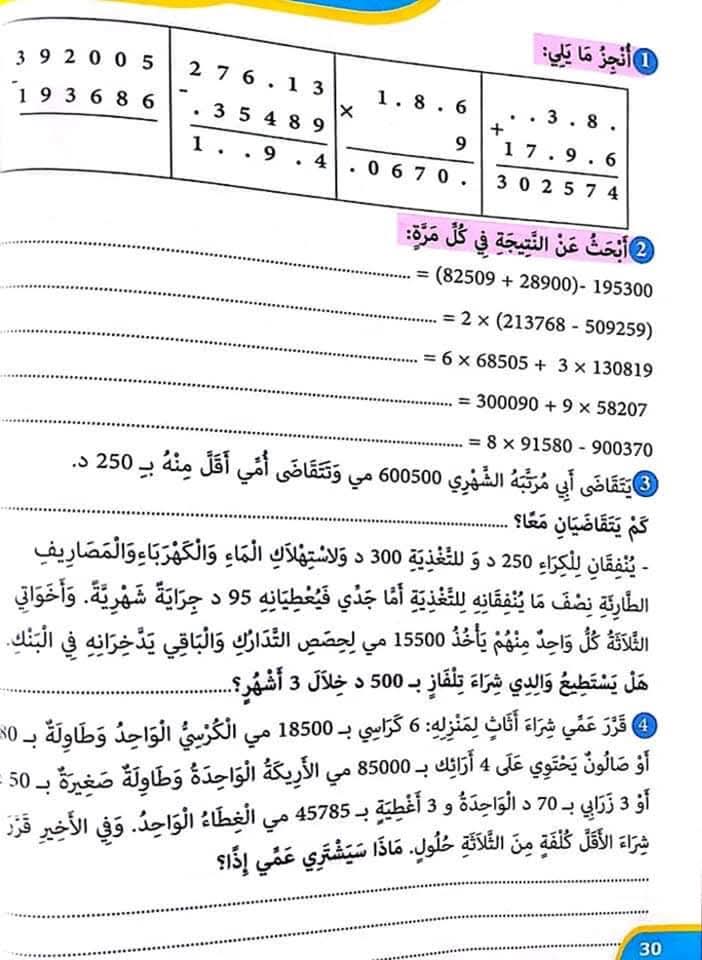 1 أُنْجِزُ مَا يَلِي:
. . 3 . 8 .
+
1 7 . 9 . 6
3 0 2 5 7 4
1 . 8 . 6
×
9
. 0 6 7 0 .
2 7 6 . 1 3
-
. 3 5 4 8 9
1 . . 9 . 4
3 9 2 0 0 5
-
1 9 3 6 8 6
2 أَبْحَثُ عَنْ النَّتِيجَةِ فِي كُلِّ مَرَّةٍ:
195300 -(28900 + 82509) = ........
(509259 - 213768) × 2 = ........
130819 × 3 + 68505 × 6 = ........
58207 × 9 + 300090 = ........
900370 - 91580 × 8 = ........
3 يَتَقَاضَى أَبِي مُرَتَّبَهُ الشَّهْرِي 600500 مي وَتَتَقَاضَى أُمِّي أَقَلَّ مِنْهُ بـ 250 د.
كَمْ يَتَقَاضَيَانِ مَعًا؟ ........
- يُنْفِقَانِ لِلْكِرَاءِ 250 د وَ للتَّغْذِيَةِ 300 د وَلاسْتِهْلَاكِ الْمَاءِ وَالْكَهْرَبَاءِ وَالْمَصَارِيفِ
الطَّارِئَةِ نِصْفَ مَا يُنْفِقَانِهِ لِلتَّغْذِيَةِ أَمَّا جَدِّي فَيُعْطِيَانِهِ 95 د جِرَايَةً شَهْرِيَّةً. وَأَخَوَاتِي
الثَّلَاثَةُ كُلُّ وَاحِدٌ مِنْهُمْ يَأْخُذُ 15500 مي لِحِصَصِ التَّدَارُكِ وَالْبَاقِي يَدَّخِرَانِهِ فِي الْبَنْكِ.
هَلْ يَسْتَطِيعُ وَالِدِي شِرَاءَ تِلْفَازٍ بـ 500 د خِلَالَ 3 أَشْهُرٍ؟ ........
4 قَرَّرَ عَمِّي شِرَاءَ أَثَاثٍ لِمَنْزِلِهِ: 6 كَرَاسِي بـ 18500 مي الْكُرْسِيُّ الْوَاحِدُ وَطَاوِلَةٌ بـ 80
أَوْ صَالُونٌ يَحْتَوِي عَلَى 4 أَرَائِكَ بـ 85000 مي الأَرِيكَةُ الْوَاحِدَةُ وَطَاوِلَةٌ صَغِيرَةٌ بـ 50
أَوْ 3 زَرَابِي بـ 70 د الْوَاحِدَةُ و 3 أَغْطِيَةٍ بـ 45785 مي الْغِطَاءُ الْوَاحِدُ. وَفِي الأَخِيرِ قَرَّرَ
شِرَاءَ الأَقَلِّ كُلْفَةٍ مِنَ الثَّلَاثَةِ حُلُولٍ. مَاذَا سَيَشْتَرِي عَمِّي إِذًا؟
30